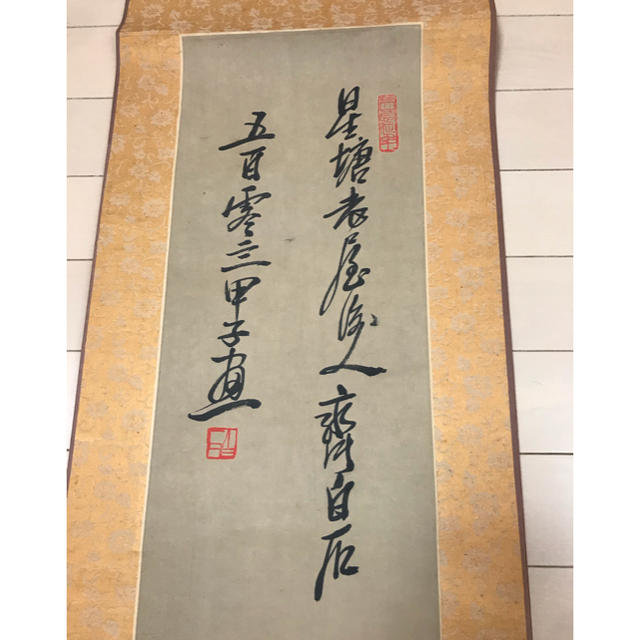 星塘老屋後人齊白石
五百零三甲子画